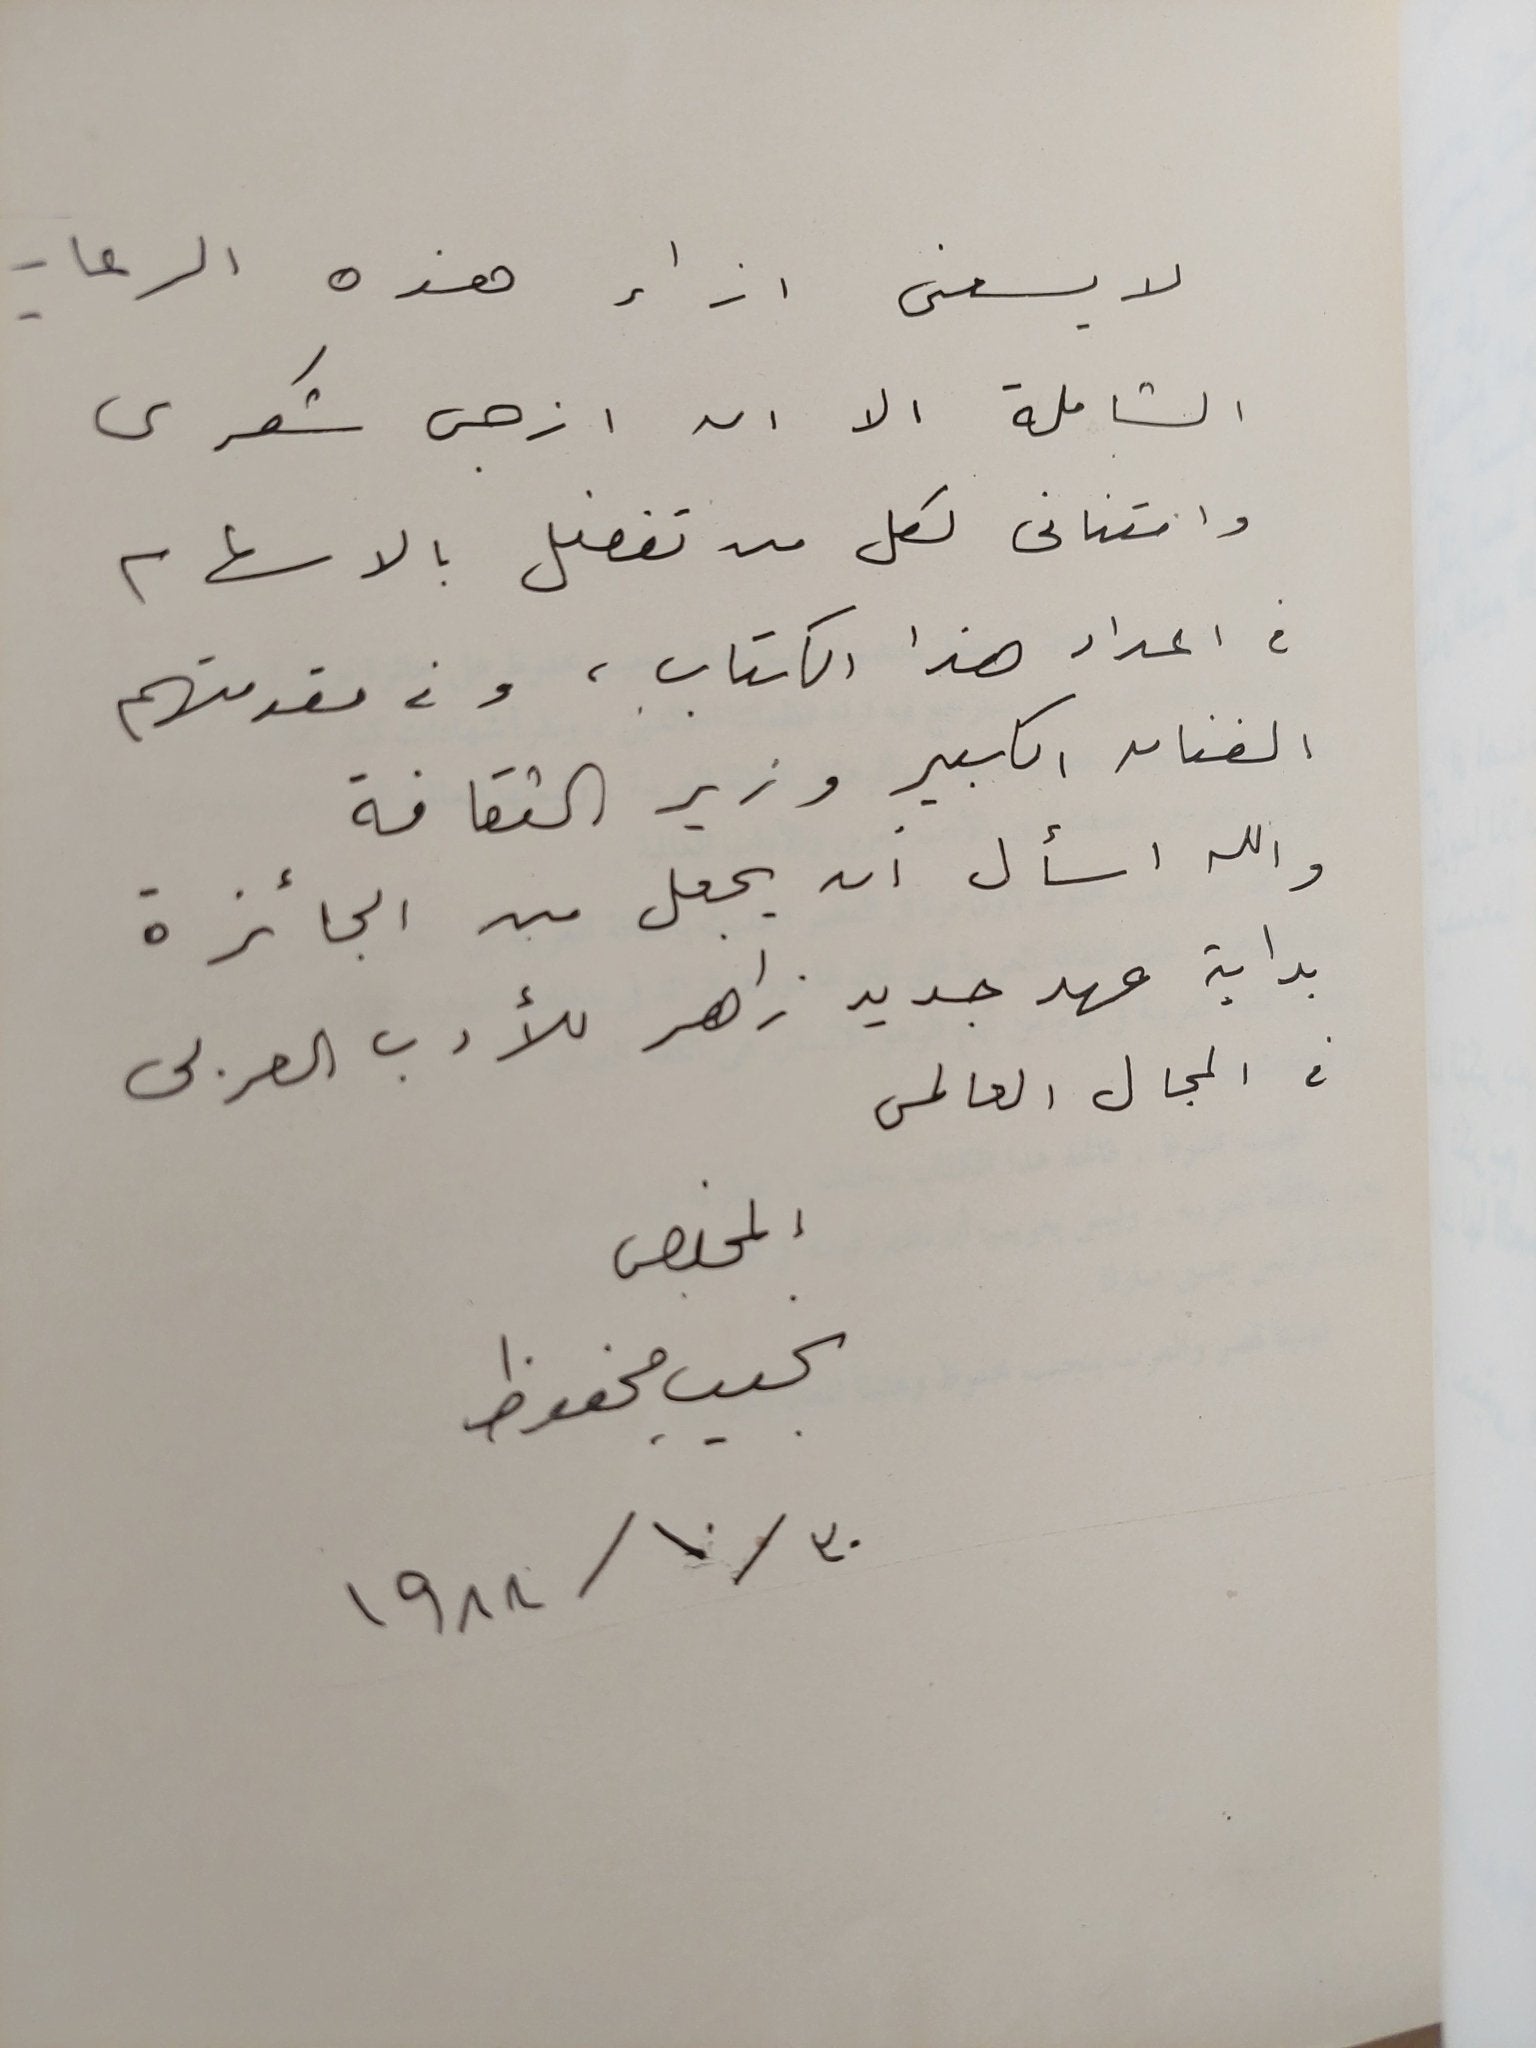 لا يسعنى ازاء هذه الرعاية
الشاملة الا ان ازجى شكرى
وامتنانى لكل من تفضل بالاسهام
فى اعداد هذا الكتاب، وفى مقدمتهم
الفنان الكبير وزير الثقافة
والله اسأل أن يجعل من الجائزة
بداية عهد جديد زاهر للأدب العربى
فى المجال العالمى
المخلص
نجيب محفوظ
٣٠/١٠/١٩٨٨